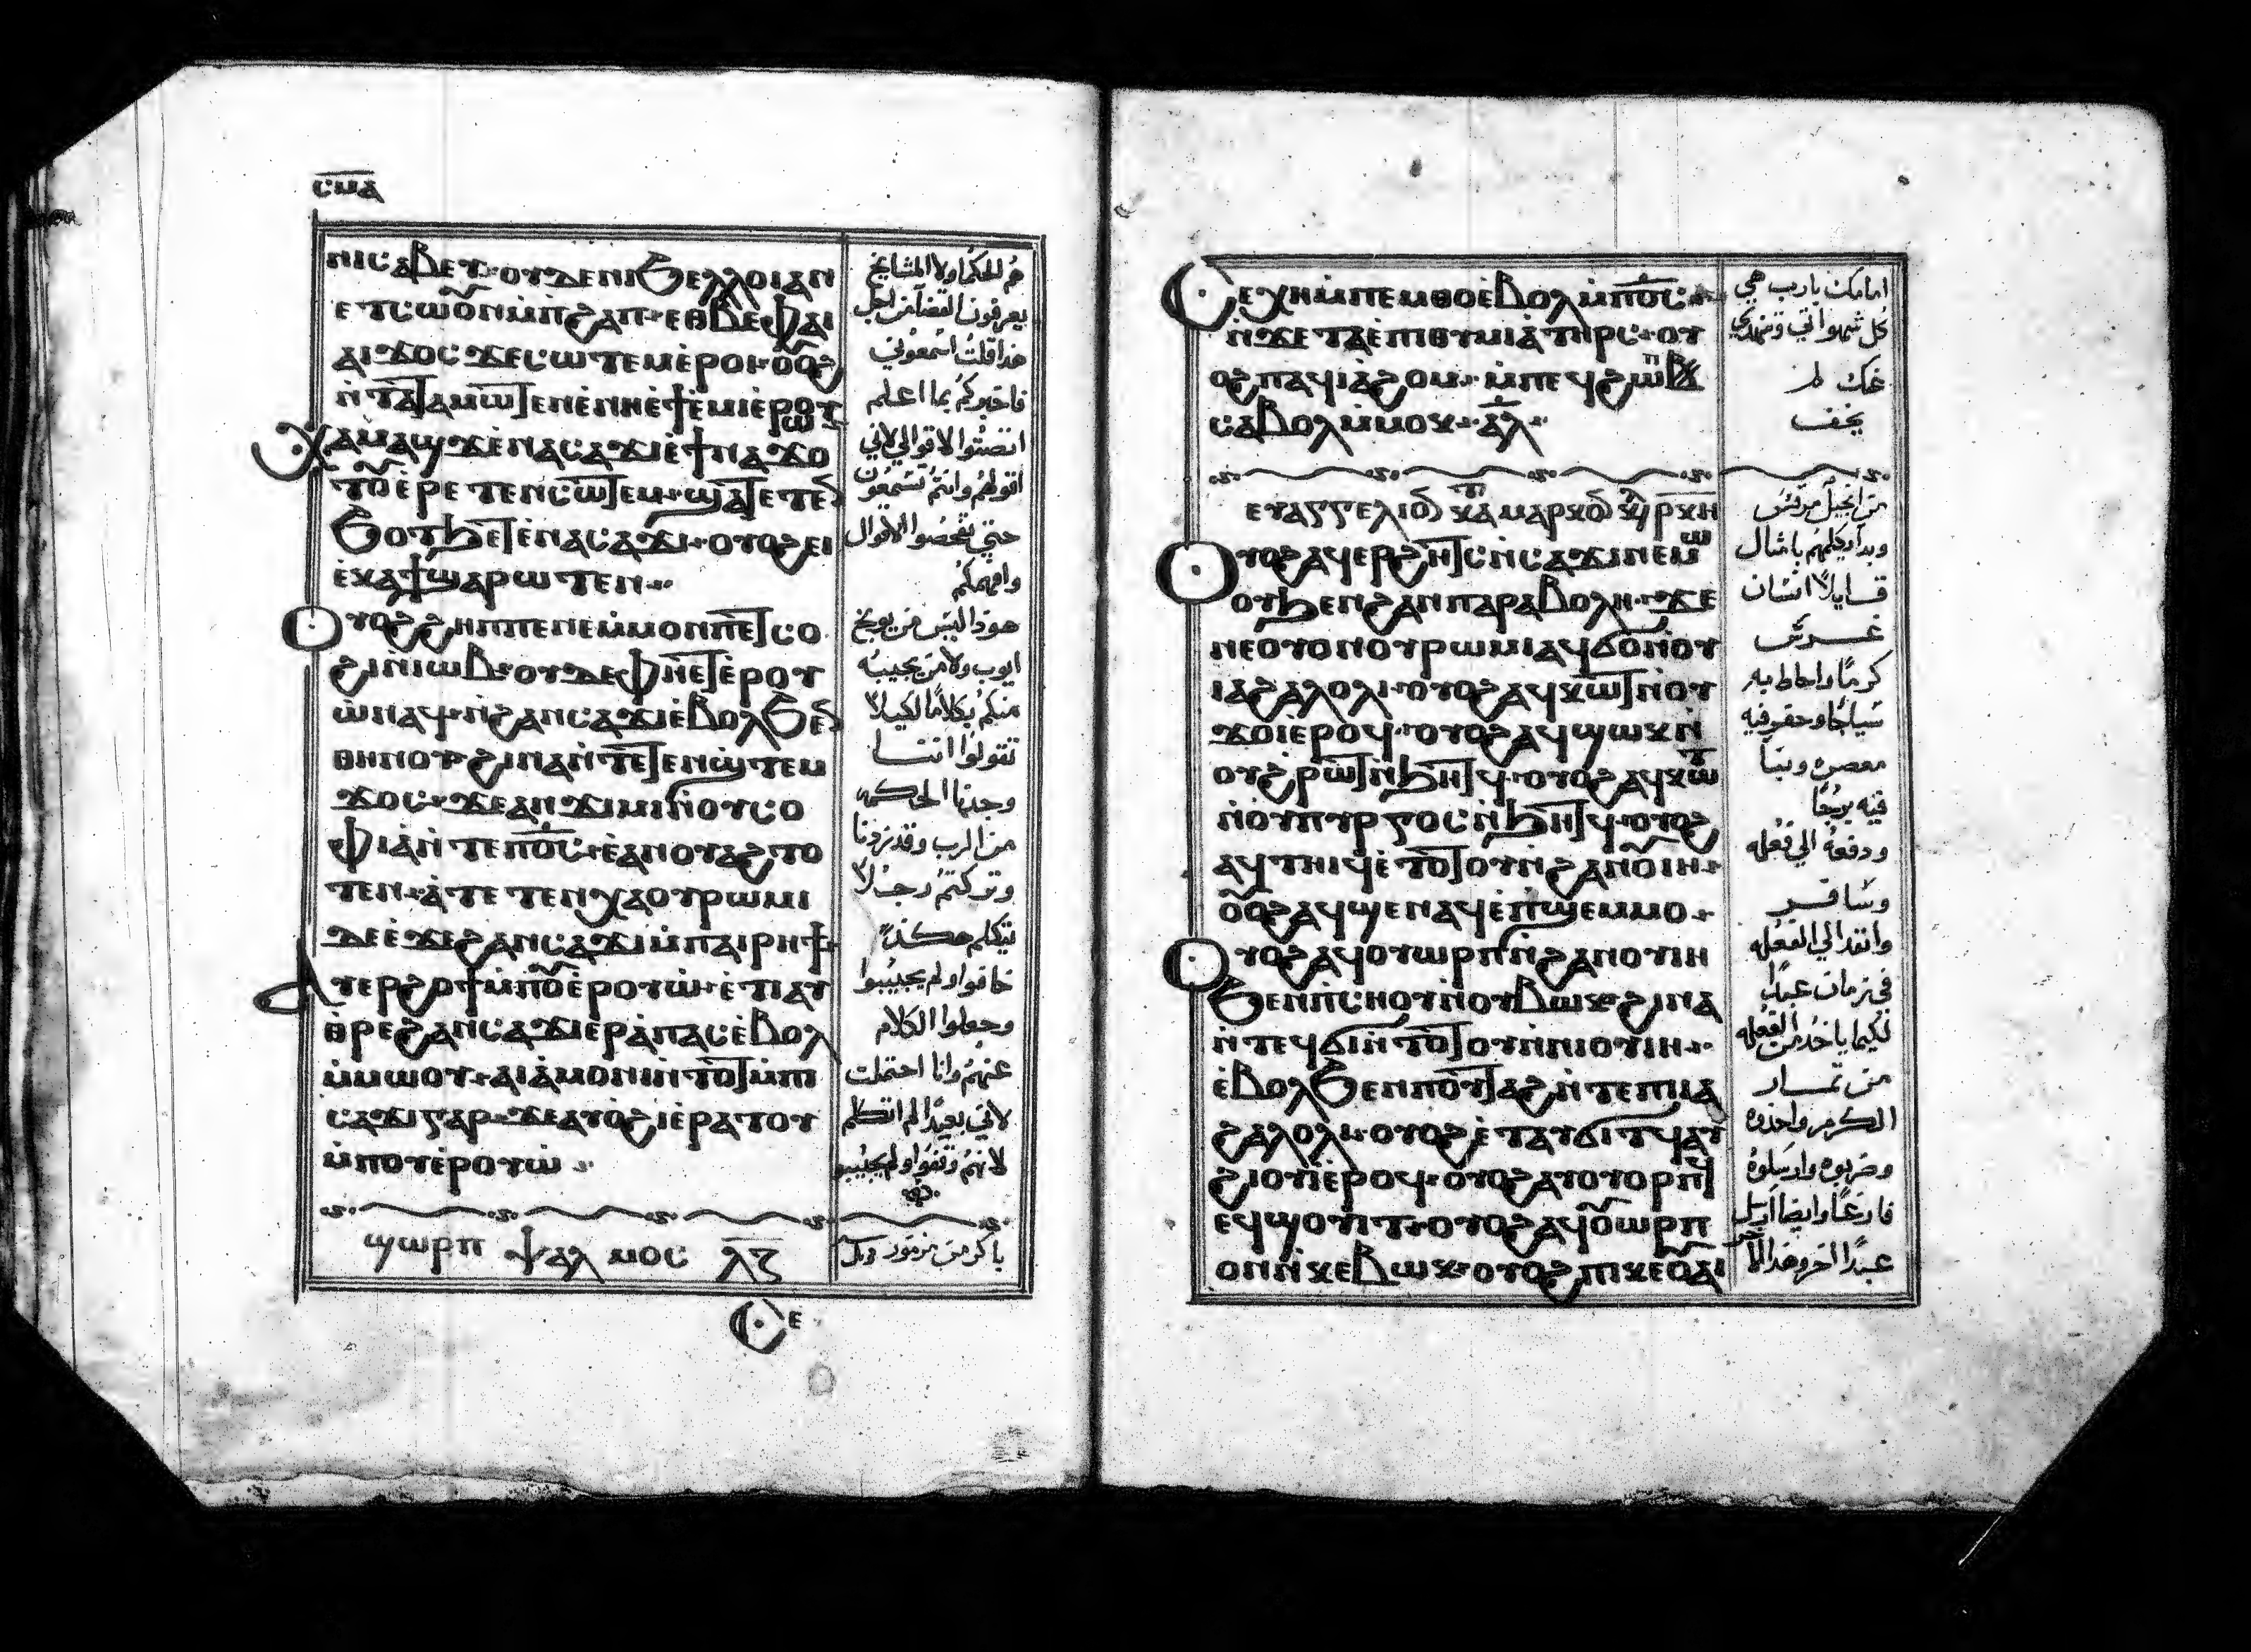 ⲥⲙⲁ
ⲛⲓⲥⲁⲃⲉⲩ ⲟⲩⲇⲉ ⲛⲓϧⲉⲗⲗⲟⲓ ⲁⲛ
ⲉⲧⲥⲱⲟⲩⲛ ⲙ̀ⲡϩⲁⲡ ⲉⲑⲃⲉ ⲫⲁⲓ
ⲁⲓϫⲟⲥ ϫⲉ ⲥⲱⲧⲉⲙ ⲉ̀ⲣⲟⲓ ⲟⲩⲟϩ
ⲛ̀ⲧⲁⲧⲁⲙⲱⲧⲉⲛ ⲉ̀ⲛⲏ ⲉ̀ϯⲉ̀ⲙⲓ ⲉ̀ⲣⲱⲟⲩ
ⲭⲁⲙⲁϣϫ ⲉ̀ⲛⲁⲥⲁϫⲓ ⲉ̀ϯⲛⲁϫⲟ
ⲧⲟⲩ ⲉⲣⲉⲧⲉⲛⲥⲱⲧⲉⲙ ϣⲁⲧⲉⲧⲉⲛ
ϧⲟⲧϧⲉⲧ ⲉ̀ⲛⲁⲥⲁϫⲓ ⲟⲩⲟϩ ⲉⲓ
ⲉ̀ⲕⲁϯ ϣⲁⲣⲱⲧⲉⲛ
ⲟⲩⲟϩ ϩⲏⲡⲡⲉ ⲛⲉ ⲙ̀ⲙⲟⲛ ⲡⲉⲧⲥⲟ
ϩⲓ ⲛ̀ⲓⲱⲃ ⲟⲩⲇⲉ ⲫⲏⲉⲧⲉ̀ⲣⲟⲩ
ⲱ̀ ⲛⲁϥ ⲛ̀ϩⲁⲛⲥⲁϫⲓ ⲉ̀ⲃⲟⲗ ϧⲉⲛ
ⲑⲏⲛⲟⲩ ϩⲓⲛⲁ ⲛ̀ⲧⲉⲧⲉⲛϣ̀ⲧⲉⲙ
ϫⲟⲥ ϫⲉ ⲁⲛϫⲓⲙⲓ ⲛ̀ⲟⲩⲥⲟ
ⲫⲓⲁ ⲛ̀ⲧⲉ ⲡⲟ̅ⲥ̅ ⲉ̀ⲁⲛⲟⲩⲁϩⲧⲟ
ⲧⲉⲛ ⲁ̀ⲧⲉⲧⲉⲛⲭⲁ ⲟⲩⲣⲱⲙⲓ
ⲇⲉ ⲉ̀ϫⲉ ϩⲁⲛⲥⲁϫⲓ ⲙ̀ⲡⲁⲓⲣⲏϯ
ⲁⲩⲉⲣϩⲟϯ ⲙ̀ⲡⲟⲩⲉ̀ⲣⲟⲩⲱ̀ ⲉ̀ⲧⲓ ⲁⲩ
ⲑⲣⲉ ϩⲁⲛⲥⲁϫⲓ ⲉⲣⲁ̀ⲡⲁⲥ ⲉ̀ⲃⲟⲗ
ⲙ̀ⲙⲱⲟⲩ ⲁⲓⲁ̀ⲙⲟⲛⲓ ⲛ̀ⲧⲟⲧ ⲙ̀ⲡⲓ
ⲥⲁϫⲓ ⲅⲁⲣ ϫⲉ ⲁⲩⲟ̀ϩⲓ ⲉ̀ⲣⲁⲧⲟⲩ
ⲙ̀ⲡⲟⲩⲉ̀ⲣⲟⲩⲱ̀
ϣⲱⲣⲡ ⲯⲁⲗⲙⲟⲥ ⲗ̅ⲍ̅
ⲥⲉ
هم الحكما ولا المشايخ
يعرفون القضا من اجل
هذا قلت اسمعوني
فاخبركم بما اعلم
انصتوا لاقوالي لاني
اقولهم وانتم تسمعون
حتي تفحصوا الاقوال
وافهمكم
هوذا ليس من يوبخ
ايوب ولا من يجيبه
منكم بكلامًا لكيلا
تقولوا اننا
وجدنا الحكمه
من الرب وقد زدنا
وتركتم رجلا
يتكلم هكذا
خافوا ولم يجيبوا
وجعلوا الكلام
عنهم وانا احتملت
لاني بعيدًا لم اتكلم
لانهم وقفوا ولم يجيبوا
باكر من مزمور
ⲥⲉⲭⲏ ⲙ̀ⲡⲉⲙⲑⲟ ⲉ̀ⲃⲟⲗ ⲙ̀ⲡⲟ̅ⲥ̅
ⲛ̀ϫⲉ ⲧⲁⲉ̀ⲡⲓⲑⲩⲙⲓⲁ̀ ⲧⲏⲣⲥ ⲟⲩ
ⲟϩ ⲡⲁϥⲓⲁ̀ϩⲟⲙ ⲙ̀ⲡⲉϥϩⲱⲡ
ⲥⲁⲃⲟⲗ ⲙ̀ⲙⲟⲕ ⲁⲗ
ⲉⲩⲁⲅⲅⲉⲗⲓⲟⲛ ⲕⲁⲧⲁ ⲙⲁⲣⲕⲟⲛ
ⲟⲩⲟϩ ⲁϥⲉⲣϩⲏⲧⲥ ⲛ̀ⲥⲁϫⲓ ⲛⲉⲙⲱ
ⲟⲩ ϧⲉⲛ ϩⲁⲛⲡⲁⲣⲁⲃⲟⲗⲏ ϫⲉ
ⲛⲉ ⲟⲩⲟⲛ ⲟⲩⲣⲱⲙⲓ ⲁϥϭⲟ ⲛ̀ⲟⲩ
ⲓⲁϩⲁⲗⲟⲗⲓ ⲟⲩⲟϩ ⲁϥⲕⲱⲧ ⲛ̀ⲟⲩ
ϫⲟⲓ ⲉ̀ⲣⲟϥ ⲟⲩⲟϩ ⲁϥϣⲱⲕ ⲛ̀
ⲟⲩϩⲣⲱⲧ ⲛ̀ϧⲏⲧϥ ⲟⲩⲟϩ ⲁϥⲕⲱⲧ
ⲛ̀ⲟⲩⲡⲩⲣⲅⲟⲥ ⲛ̀ϧⲏⲧϥ ⲟⲩⲟϩ
ⲁϥⲧⲏⲓϥ ⲉ̀ⲧⲟⲧⲟⲩ ⲛ̀ϩⲁⲛⲟⲩⲓⲏ
ⲟⲩⲟϩ ⲁϥϣⲉⲛⲁϥ ⲉ̀ⲡϣⲉⲙⲙⲟ
ⲟⲩⲟϩ ⲁϥⲟⲩⲱⲣⲡ ⲛ̀ϩⲁⲛⲟⲩⲓⲏ
ϧⲉⲛ ⲡⲥⲏⲟⲩ ⲛ̀ⲟⲩⲃⲱⲕ ϩⲓⲛⲁ
ⲛ̀ⲧⲉϥϭⲓ ⲛ̀ⲧⲟⲧⲟⲩ ⲛ̀ⲛⲓⲟⲩⲓⲏ
ⲉ̀ⲃⲟⲗ ϧⲉⲛ ⲡⲟⲩⲧⲁϩ ⲛ̀ⲧⲉ ⲡⲓⲓⲁ
ϩⲁⲗⲟⲗⲓ ⲟⲩⲟϩ ⲉ̀ⲧⲁⲩϭⲓⲧϥ ⲁⲩ
ϩⲓⲟⲩⲓ̀ ⲉ̀ⲣⲟϥ ⲟⲩⲟϩ ⲁⲩⲟⲩⲟⲣⲡϥ
ⲉϥϣⲟⲩⲓⲧ ⲟⲩⲟϩ ⲁϥⲟⲩⲱⲣⲡ
ⲟⲛ ⲛ̀ⲕⲉⲃⲱⲕ ⲟⲩⲟϩ ⲡⲓⲕⲉⲟⲩⲁⲓ
امامك يارب هي
كل شهواتي وتنهدي
عنك لم
يخف
من انجيل مرقس
وبدا يكلمهم بامثال
قايلا انسان
غرس
كرمًا واحاط به
سياجًا وحفر فيه
معصره وبنا
فيه برجًا
ودفعه الي فعله
وسافر
وانفد الي الفعله
في زمان عبدًا
لكيما ياخذ من الفعله
من تمار
الكرم واخذوه
وضربوه وارسلوه
فارغًا وايضا ارسل
عبدًا اخر وهذا الاخر